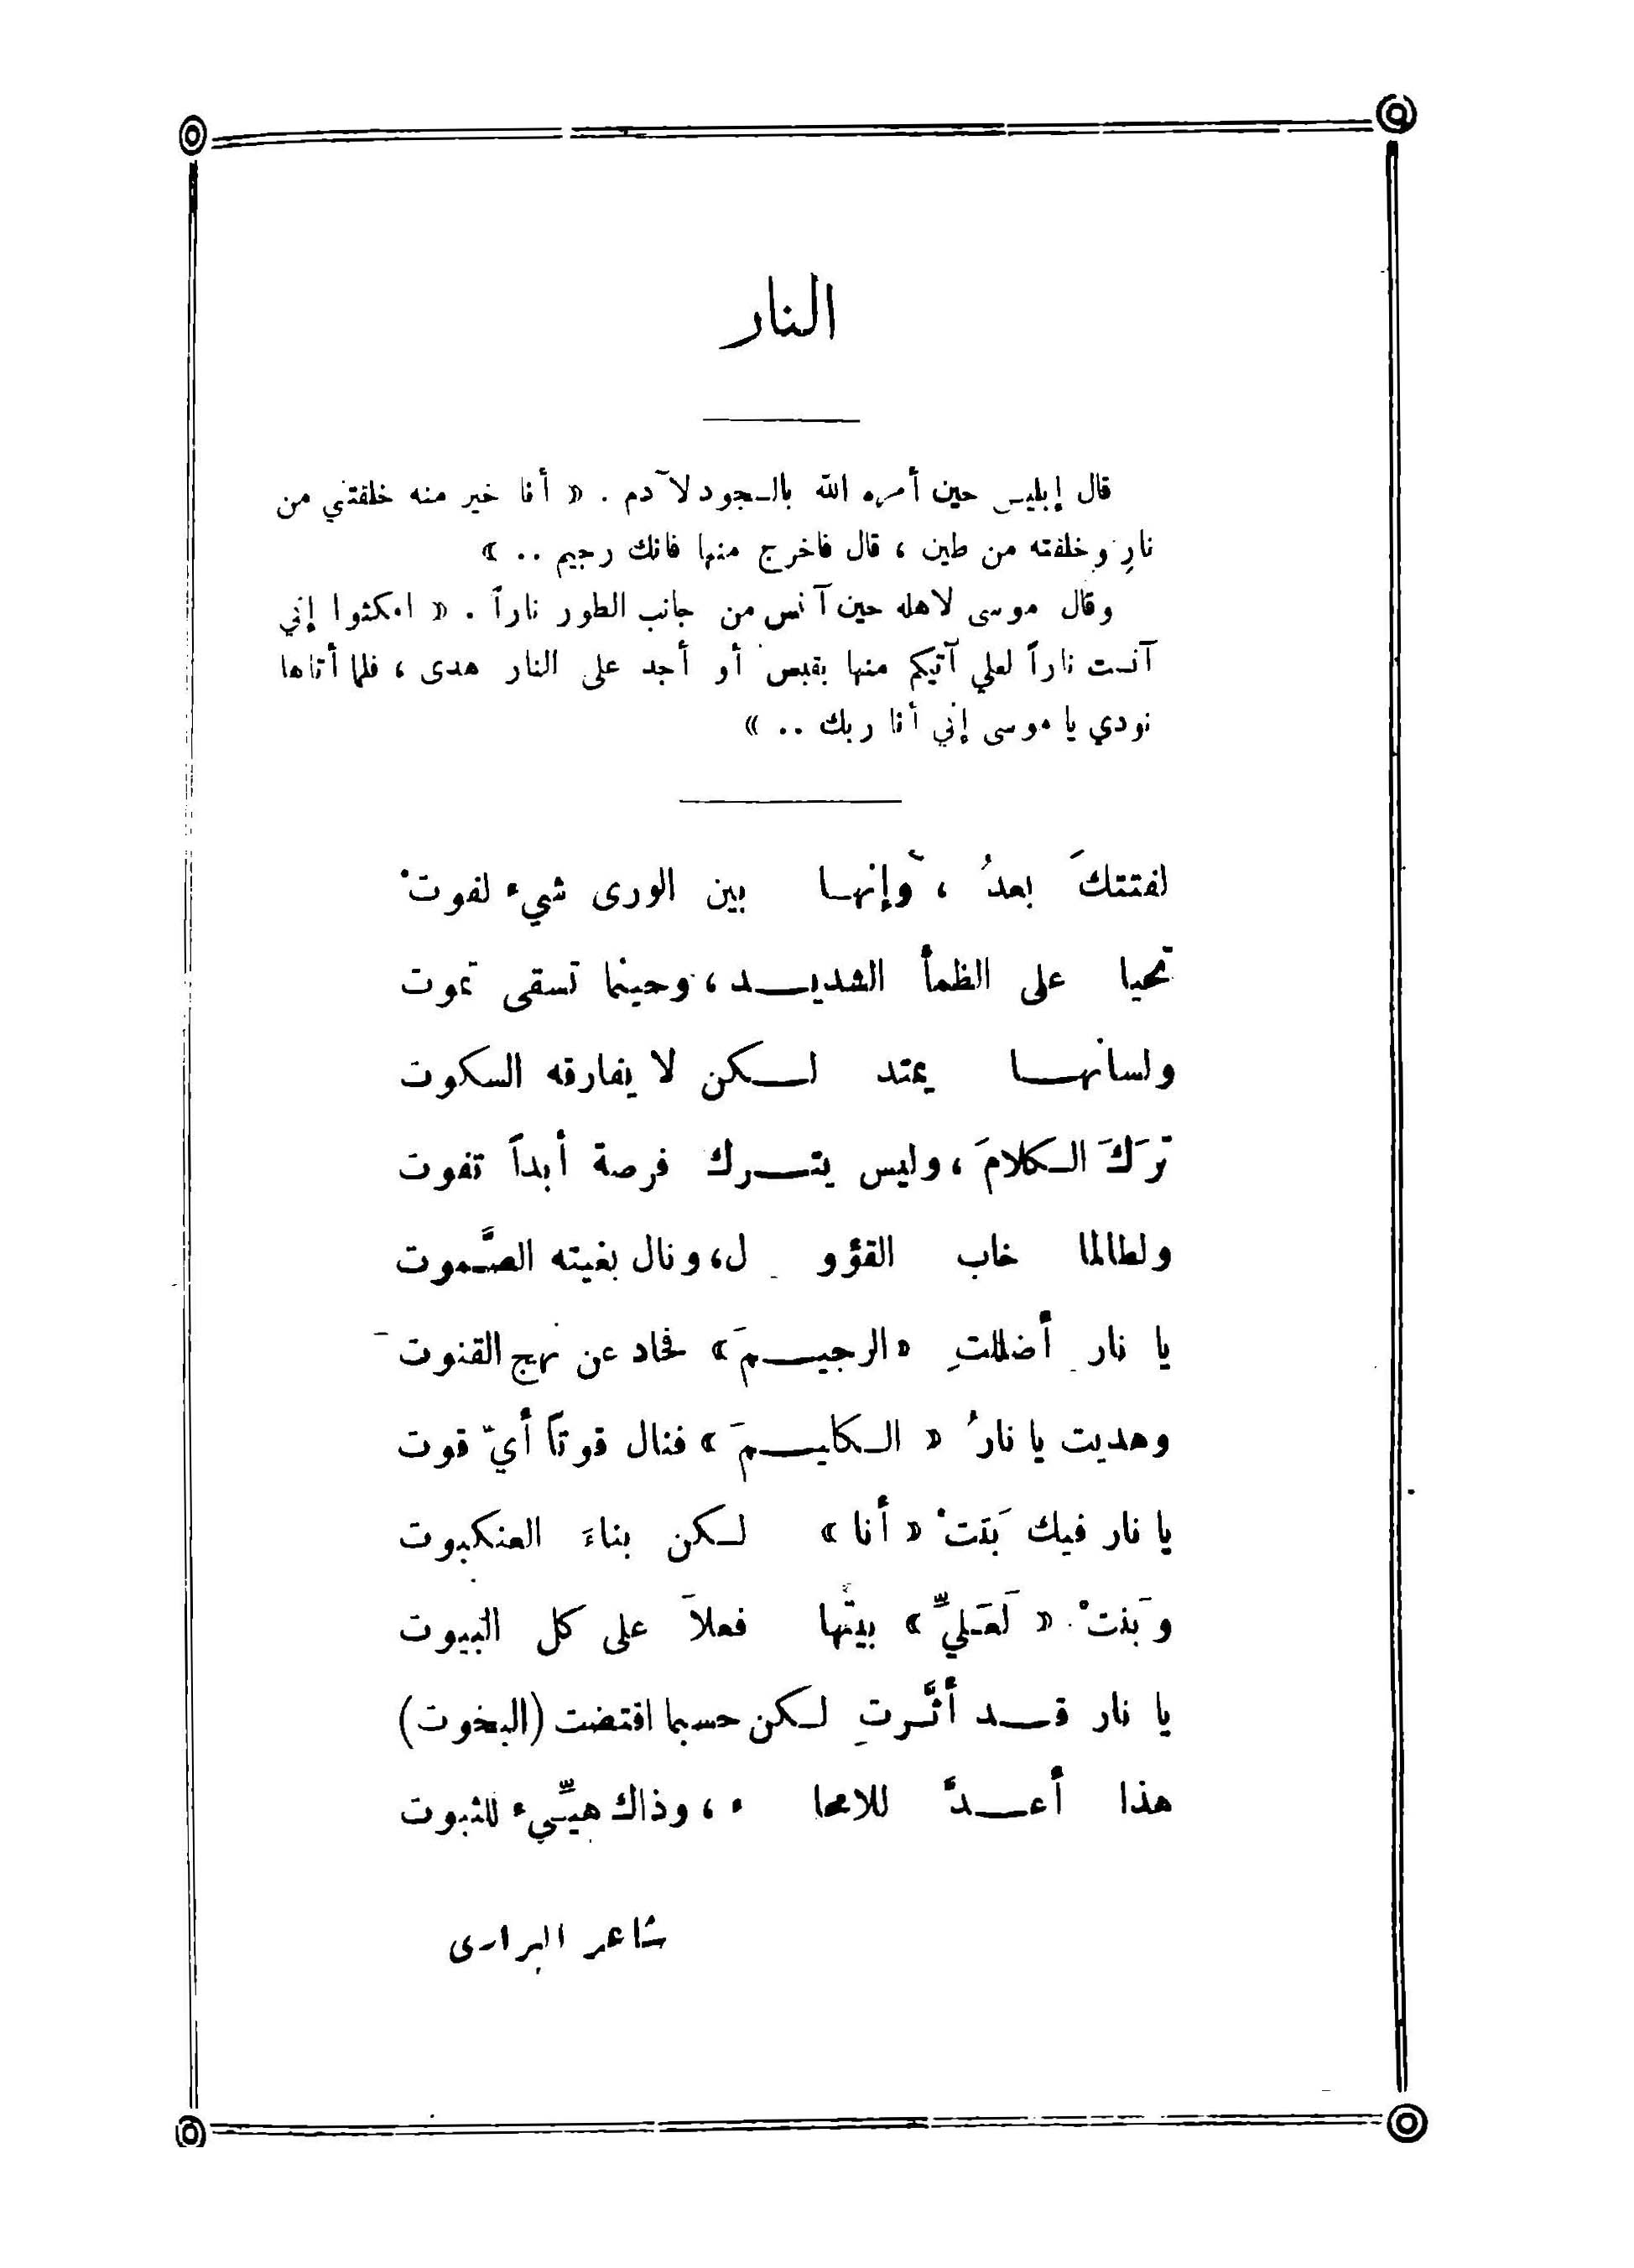 النار
قال إبليس حين أمره الله بالسجود لآدم . « أنا خير منه خلقتني من
نارٍ وخلقته من طين ، قال فاخرج منها فانك رجيم .. »
وقال موسى لاهله حين آنس من جانب الطور ناراً . « امكثوا إني
آنست ناراً لعلي آتيكم منها بقبس أو أجد على النار هدى ، فلما أتاها
نودي يا موسى إني أنا ربك .. »
لفتتكَ بعدُ ، وإنها بين الورى شيء لفوتْ
تحيا على الظمأ الشديد ، وحينما تسقى تموت
ولسانها يمتد لكن لا يفارقه السكوت
تركَ الكلامَ ، وليس يترك فرصة أبداً تفوت
ولطالما خاب القؤو ل، ونال بغيته الصَّموت
يا نار أضللتِ «الرجيمَ» فحاد عن نهج القنوت
وهديت يا نارُ « الكليمَ » فنال قوتاً أيّ قوت
يا نار فيك بَنَتْ « أنا » لكن بناءَ العنكبوت
وبَنَتْ « لَعَليِّ » بيتها فعلاَ على كل البيوت
يا نار قد أثَّرتِ لكن حسبما اقتضت (البخوت)
هذا أعدَّ للامحا ء ، وذاك هيِّيء للثبوت
شاعر البرارى